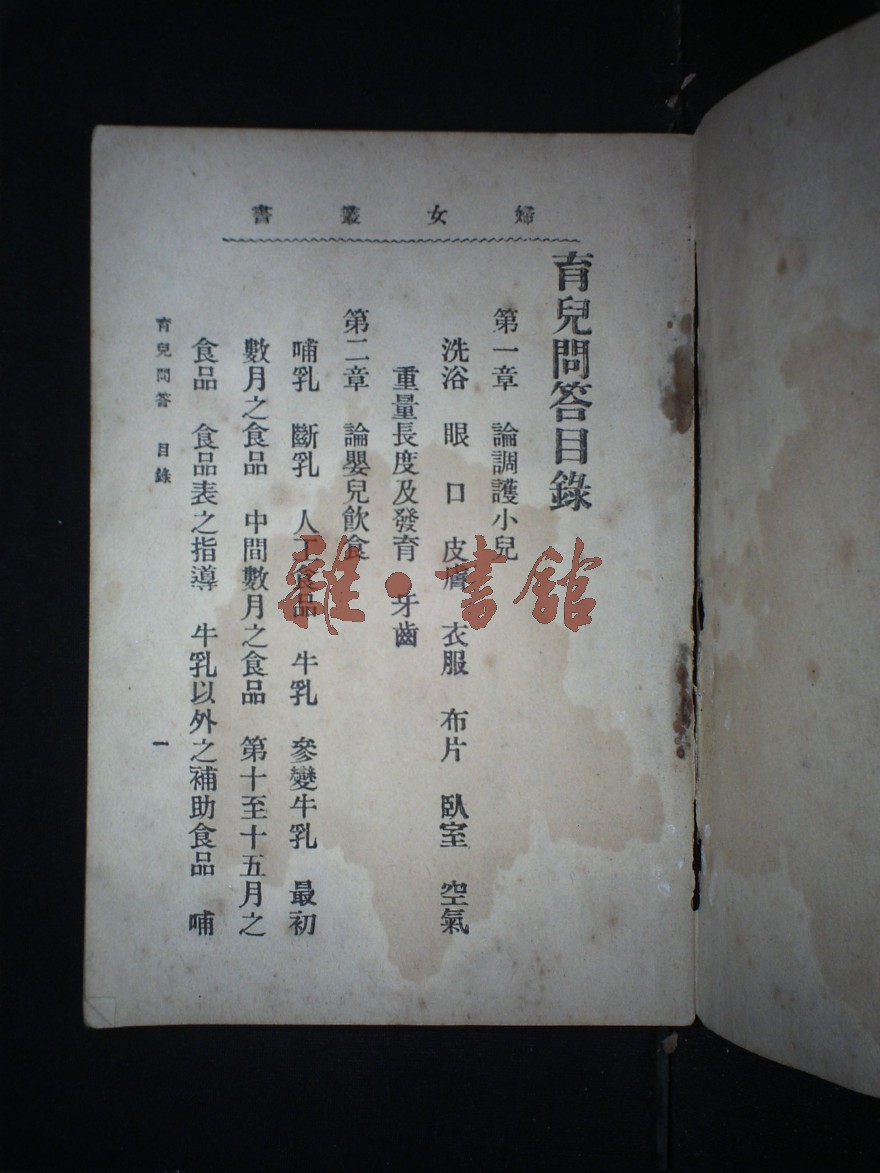 婦女叢書
育兒問答目錄
第一章 論調護小兒
洗浴 眼 口 皮膚 衣服 布片 臥室 空氣
重量長度及發育 牙齒
第二章 論嬰兒飲食
哺乳 斷乳 人工食品 牛乳 參變牛乳 最初
數月之食品 中間數月之食品 第十至十五月之
食品 食品表之指導 牛乳以外之補助食品 哺
育兒問答 目錄 一
雜·書館